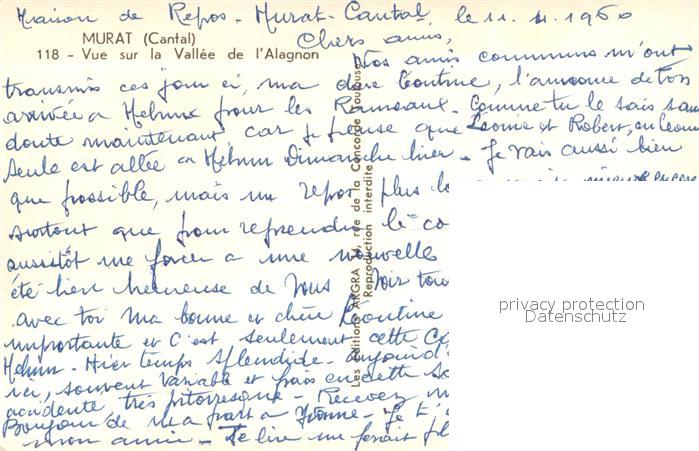 Maison de Repos - Murat - Cantal, le 11.4.1960
MURAT (Cantal)
118 - Vue sur la Vallée de l'Alagnon
Chers amis,
Nos amis communs m'ont
transmis ces jours ci, ma chère l'annonce de ton
arrivée a Mehun pour les Rameaux. Comme tu le sais sans
doute maintenant car je pense que Léonie et Robert, ou Léonie
seule est allée a Mehun Dimanche hier - Je vais aussi bien
que possible, mais un repos plus
surtout que pour reprendre le
aussitôt me forcer a une nouvelles
été bien heureuse de Vous Voir
avec toi ma bonne et chère
importante et C'est seulement cette
Mehun - Hier temps splendide - aujourd'
ici, souvent variable et frais en cette
accidenté, très pittoresque - Recevez
Bonjour de ma part a Yvonne - Je t'
mon amie - Te lire me ferait
Les Editions ARGRA rue de la Concorde Toulouse
Reproduction interdite
privacy protection
Datenschutz